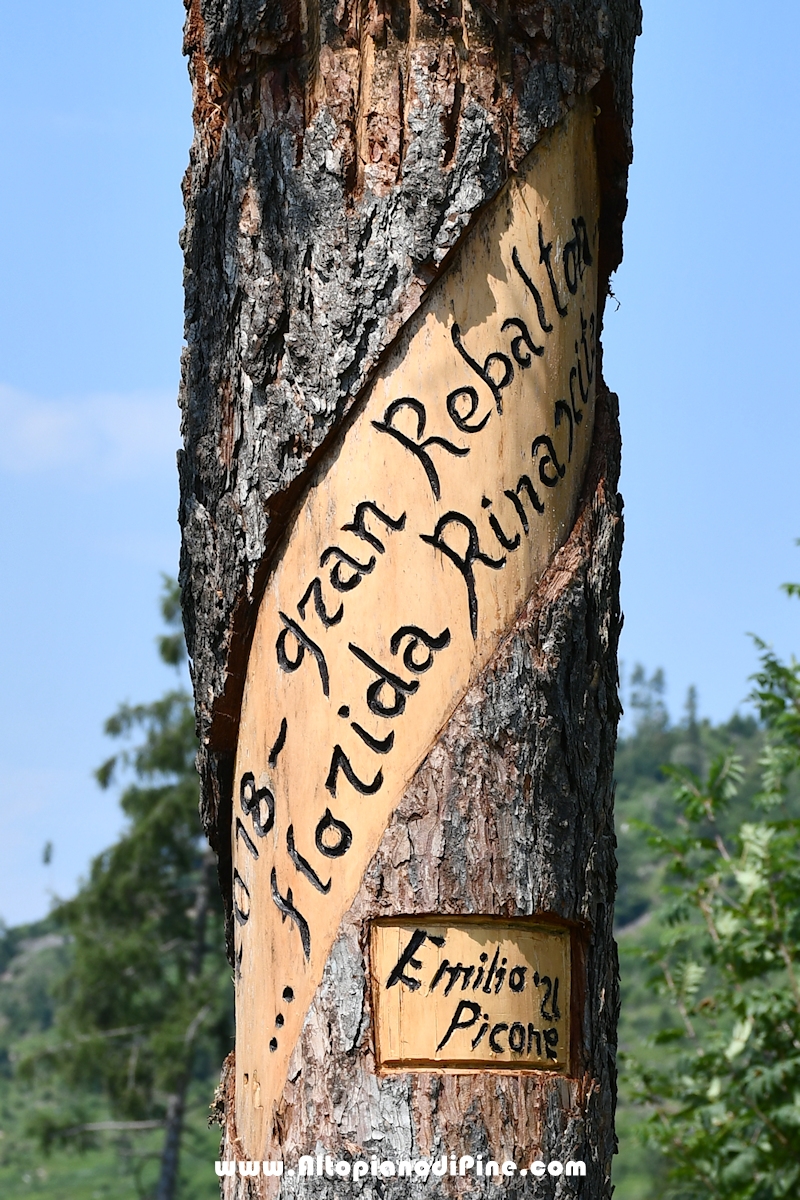 2018 - gran Rebalton
... florida Rinascita
Emilio "Il
Picone
www.AltopianodiPine.com